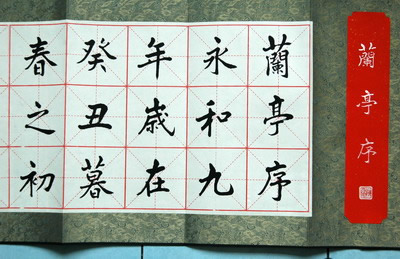 蘭亭序
蘭亭序
永和九
年歲在
癸丑暮
春之初